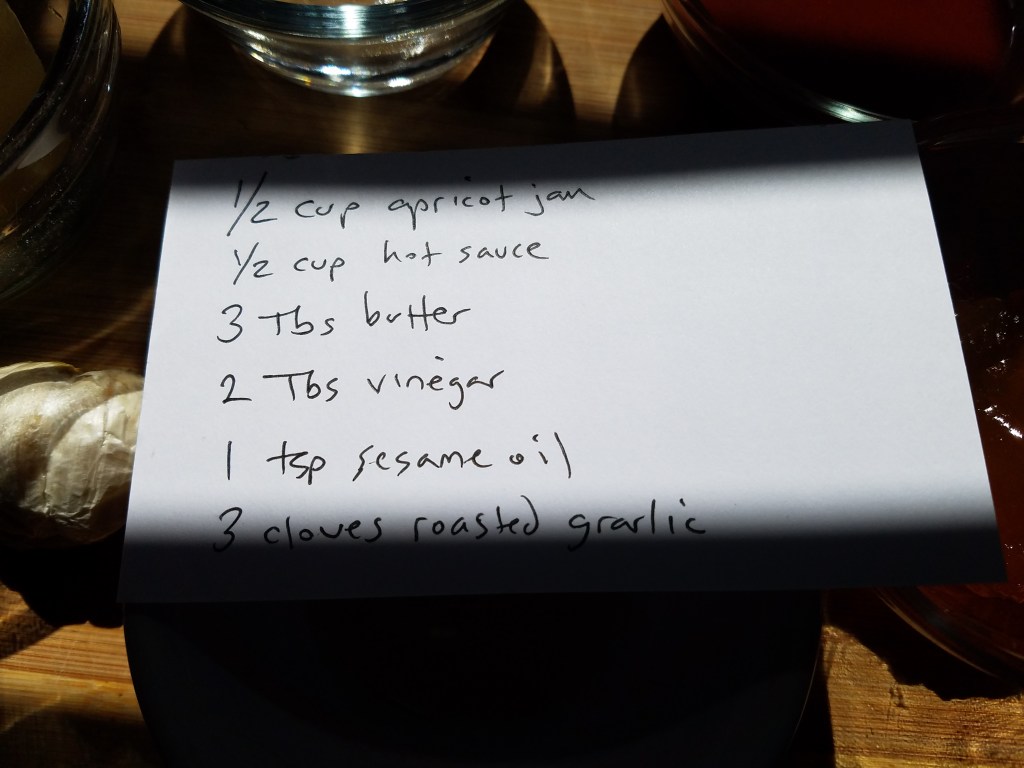 1/2 cup apricot jam
1/2 cup hot sauce
3 Tbs butter
2 Tbs vinegar
1 tsp sesame oil
3 cloves roasted grarlic